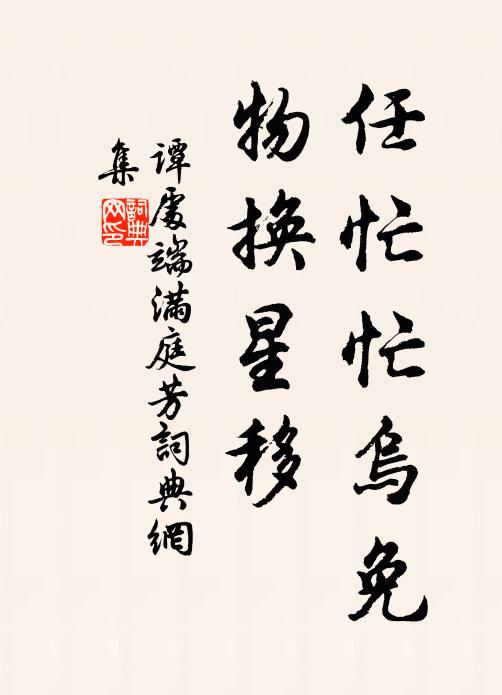 任忙忙烏免
物換星移
譚處端滿庭芳詞典網
集
詞典
网印